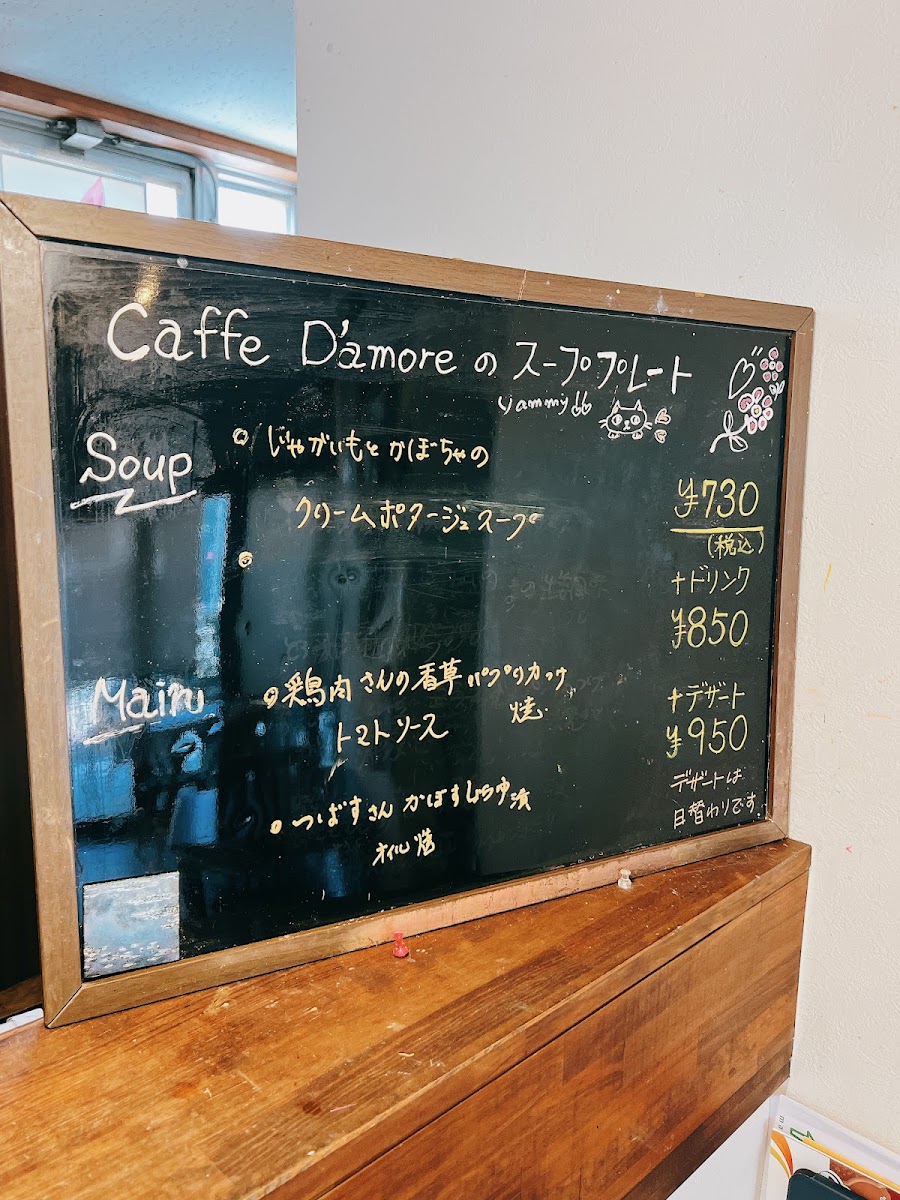 Caffe D'amore の スーププレート
yammy!!
Soup
じゃがいもと かぼちゃの
クリームポタージュスープ
¥730
(税込)
+ドリンク
¥850
Main
鶏肉さんの香草パプリカっけ
焼
トマトソース
+デザート
¥950
つばすさん かぼすしょうゆ漬
オイル焼
デザートは
日替わりです